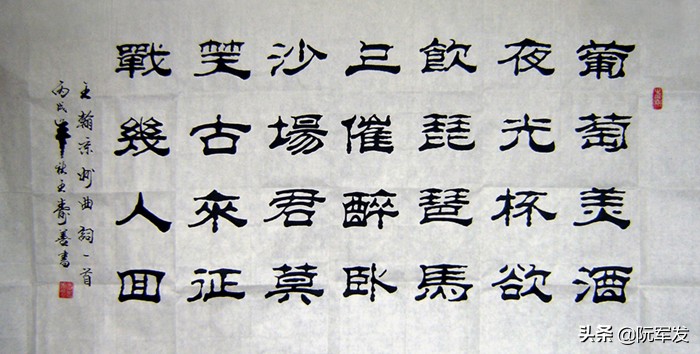 葡萄美酒
夜光杯欲
飲琵琶馬
上催醉卧
沙場君莫
笑古來征
戰幾人回
王翰凉州曲詞一首
丙戌年秋王壽善書
头条 @阮军发